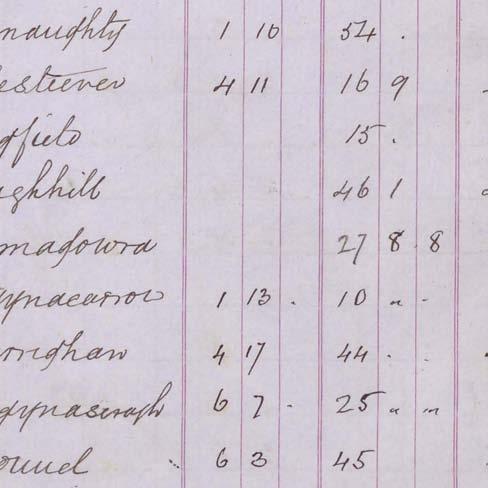 naughty 1 10 54 .
esteever 4 11 16 9
gfield 15 .
ughhill 46 1
madowra 27 8 8
gynacarrow 1 13 . 10 " -
rrighan 4 17 44 . .
gynaseragh 6 7 - 25 " "
ound 6 3 45